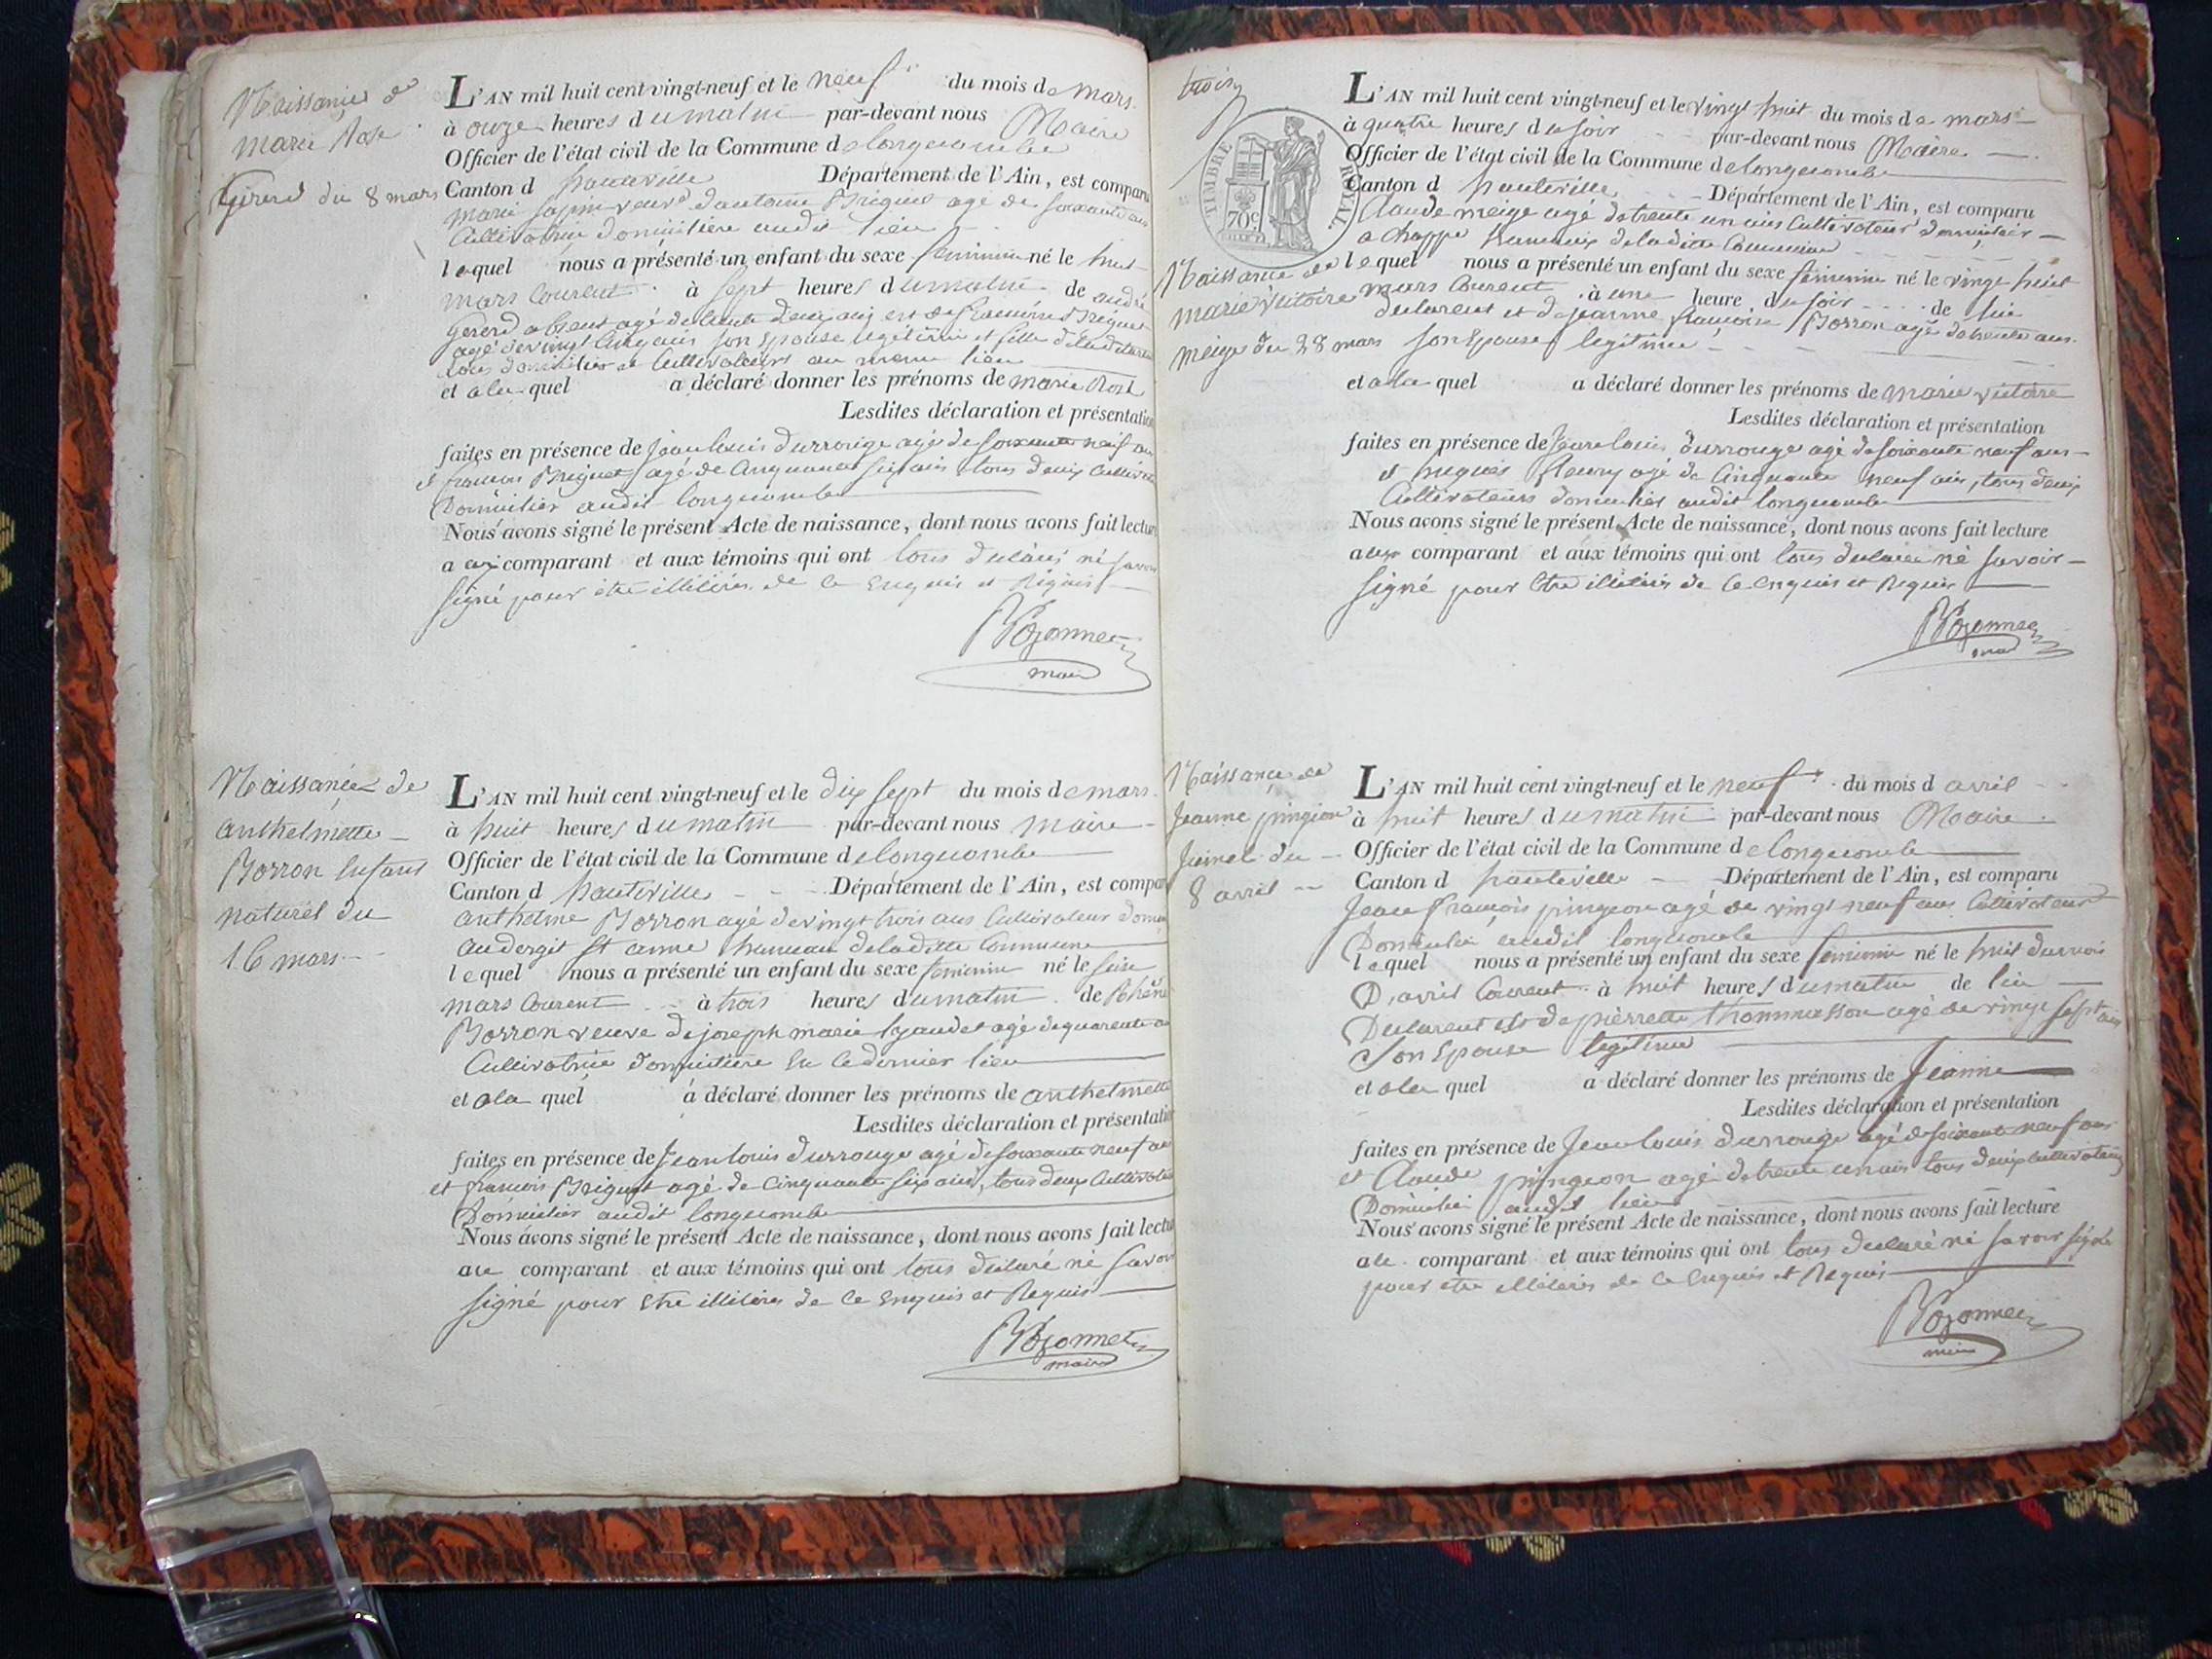 Naissance de
marie Rose
Gerend du 8 mars
L'AN mil huit cent vingt-neuf et le neuf du mois de mars
à onze heures du matin par-devant nous Maire
Officier de l'état civil de la Commune de longecombe
Canton d hauteville Département de l'Ain, est comparu
marie sapin veuve d'antoine Briguet agé de soixante ans
Cultivatrice domiciliere audit lieu
lequel nous a présenté un enfant du sexe feminin né le huit
mars Courent à sept heures du matin de andré
Gerend absent agé de trente deux ans et de francoise Briguet
agé de vingt cinq ans son Epouse legitime et fille de la
tous domicilier et Cultivateurs au meme lieu
et a la quel a déclaré donner les prénoms de marie Rose
Lesdites déclaration et présentation
faites en présence de Jean louis durrouge agé de soixante neuf ans
et francois Briguet agé de cinquante six ans tous deux Cultivat
Domicilier audit longecombe
Nous avons signé le présent Acte de naissance, dont nous avons fait lecture
a comparant et aux témoins qui ont tous declaré né savoir
signé pour etre illiteres de ce Enquis et Requis
Bozonnet
maire
Naissance de
anthelmette
Borron Enfant
naturel du
16 mars
L'AN mil huit cent vingt-neuf et le dix sept du mois de mars
à huit heures du matin par-devant nous maire
Officier de l'état civil de la Commune de longecombe
Canton d hauteville Département de l'Ain, est compar
anthelme Borron agé de vingt trois ans Cultivateur domi
au dergit st anne hameau de la ditte Commune
lequel nous a présenté un enfant du sexe feminin né le seise
mars Courent à trois heures du matin de
Borron veuve de joseph marie agé de quarente a
Cultivatrice domiciliere En ce dernier lieu
et a la quel a déclaré donner les prénoms de anthelmette
Lesdites déclaration et présentation
faites en présence de Jean louis durrouge agé de soixante neuf ans
et francois Briguet agé de cinquante six ans, tous deux Cultivate
Domicilier audit longecombe
Nous avons signé le présent Acte de naissance, dont nous avons fait lectu
au comparant et aux témoins qui ont tous declaré né savoir
signé pour Etre illiteres de ce Enquis et Requis
Bozonnet
maire
trois
TIMBRE ROYAL.
70 c
Naissance de
marie victoire
meige du 28 mars
L'AN mil huit cent vingt-neuf et le vingt huit du mois de mars
à quatre heures du soir par-devant nous Maire
Officier de l'état civil de la Commune de longecombe
Canton d hauteville Département de l'Ain, est comparu
Claude meige agé de trente un ans Cultivateur
a Chappe hameaux de la ditte Commune
lequel nous a présenté un enfant du sexe feminin né le vingt huit
mars Courent à une heure du soir de lui
declarent et de jeanne francoise Borron agé de trente ans
son Epouse legitime
et a la quel a déclaré donner les prénoms de marie victoire
Lesdites déclaration et présentation
faites en présence de Jean louis durrouge agé de soixante neuf ans
et hugues fleury agé de cinquante neuf ans, tous deux
Cultivateurs domicilier audit longecombe
Nous avons signé le présent Acte de naissance, dont nous avons fait lecture
au comparant et aux témoins qui ont tous declaré né savoir
signé pour Etre illiteres de ce enquis et Requis
Bozonnet
maire
Naissance de
Jeanne pingeon
du
8 avril
L'AN mil huit cent vingt-neuf et le neuf du mois d avril
à huit heures du matin par-devant nous Maire
Officier de l'état civil de la Commune de longecombe
Canton d hauteville Département de l'Ain, est comparu
Jean françois pingeon agé de vingt neuf ans Cultivateur
Domicilié audit longecombe
lequel nous a présenté un enfant du sexe feminin né le huit du mois
D'avril Courent à huit heures du matin de lui
Declarent et de pierrette thommasson agé de vingt sept ans
son Epouse legitime
et a la quel a déclaré donner les prénoms de Jeanne
Lesdites déclaration et présentation
faites en présence de Jean louis durrouge agé de soixante neuf ans
et Claude pingeon agé de trente un ans tous deux cultivateurs
Domicilié audit lieu
Nous avons signé le présent Acte de naissance, dont nous avons fait lecture
au comparant et aux témoins qui ont tous declaré né savoir signé
pour etre illiteres de ce Enquis et Requis
Bozonnet
maire